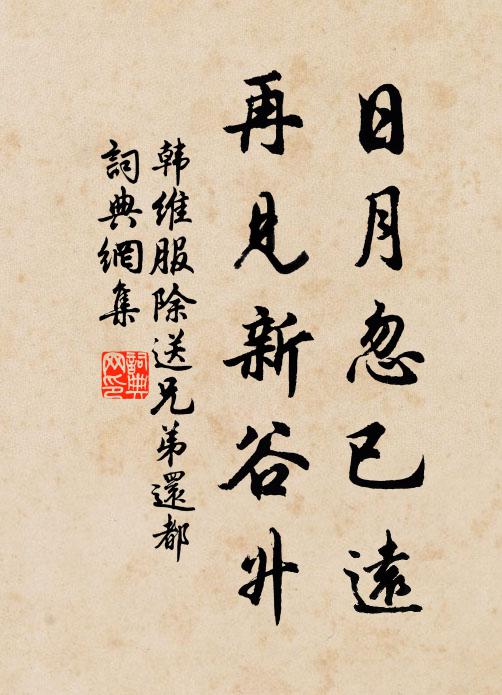 日月忽已遠
再見新谷升
韩維服除送兄弟還都
詞典網集
詞典网印